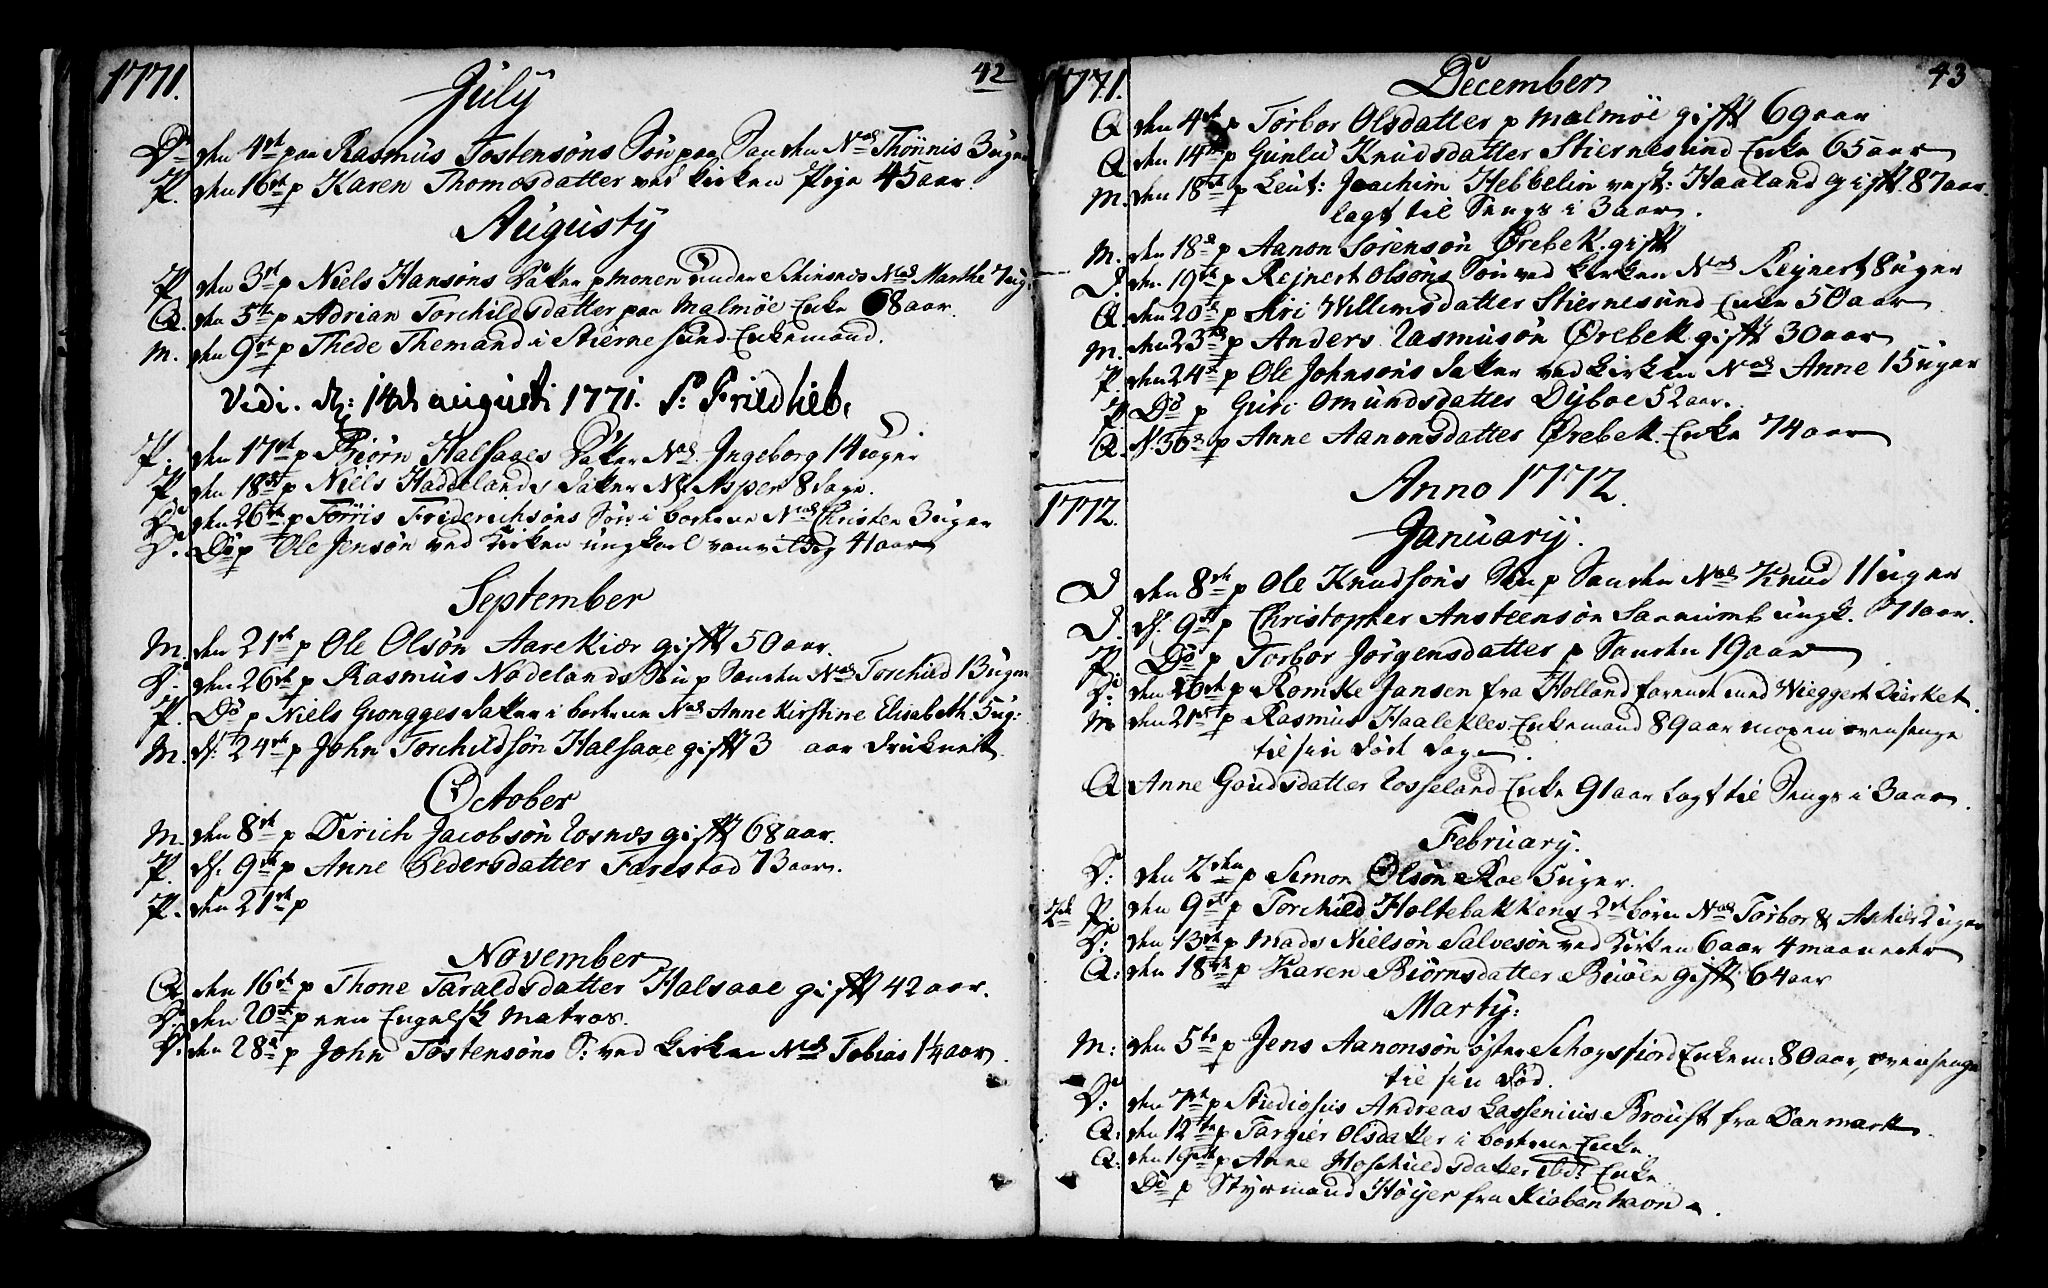 1771.
42
July
D: den 4de paa Rasmus Tostensøns Søn paa Sanden Nad Thønnis 3 uger
P. den 16de p Karen Thomæsdatter ved Kirken Pige 45 aar.
Augusty
P. den 3de p Niels Hansøns Daater p monen under Skinsnes Nad Marthe 7 ug:
Q. den 5te p Adrian Torchildsdatter paa Malmøe Enke 68 aar.
M. den 9de p Thede Themand i Stiernesund Enkemand.
Vidi. d: 14de augusti 1771. P: Friedlieb.
P. den 17de p Biørn Halsaaes Daater Nad Ingeborg 14 uger
P. den 18de p Niels Haddelands Daater Nad Aspen 8 dage.
D. den 26de p Tørris Friderichsøns Søn i borhene Nad Christen 3 uger
D. Do p Ole Jensøn ved Kirken ungkarl vanvittig 41 aar
September
M. den 21de p Ole Olsøn Aarekiær gift 50 aar.
D. den 26de p Rasmus Nodelands Søn p Sanden Nad Torchild 13 uger
P. Do p Niels Gronggesdaater i borhene Nad Anne Kirstine Elisabeth 5 ug:
M. d: 24de p John Torchildsøn Halsaae gift 3 aar druknett
October
M. den 8de p Dirich Jacobsøn Rosnæs gift 68 aar.
P. d: 9de p Anne Pedersdatter Farestad 73 aar.
P. den 21de p
November
Q. den 16de p Thone Taraldsdatter Halsaae gift 42 aar.
D. den 20de p een Engelsk Matros.
D. den 28de p John Tostensøns S: ved Kirken Nad Tobias 1¼ aar.
1771.
43
December
Q den 4de p Torbor Olsdatter p Malmøe gift 69 aar
Q den 14de p Gunlu Knudsdatter Stiernesund Enke 65 aar
M. den 18de p Leut: Joachim Hebbelin vest: Haaland gift 87 aar.
lagt til Sengs i 3 aar.
M. den 18de p Aanon Sørensøn Ørebek gift
D. den 19de p Rejnert Olsøns Søn ved Kirken Nad Rejnert 8 uger
Q. den 20de p Siri Willumsdatter Stiernesund Enke 50 aar
M. den 23de p Anders Rasmusøn Ørebek gift 30 aar
P. den 24de p Ole Johnsøns Daater ved Kirken Nad Anne 15 uger
P Do p Guri Omundsdatter Dyboe 52 aar.
Q. d. 30de p Anne Aanonsdatter Ørebek Enke 74 aar
Anno 1772.
1772.
January.
D den 8de p Ole Knudsøns Søn p Sanden Nad Knud 11 uger
D. d. 9de p Christopher Ansteensøn Sannumb ungk. 71 aar.
P. Do p Torbor Jørgensdatter p Sanden 19 aar
D: den 16de p Romke Jansen fra Holland farende med Wieggert Dirket.
M den 21de p Rasmus Haaleklev Enkemand 89 aar oven senge
til sin Død dag.
Q Anne Gaudsdatter Rosseland Enke 91 aar lagt til Sengs i 3 aar.
February.
D: den 2den p Simon Olsøn Roe 5 uger.
2de P. den 9de p Torchild Holtebakkens 2de børn Nad Torbor & Askier 2 uger
D: den 13de p Mads Nielsøn Salvesøn ved Kirken 6 aar 4 maaneder
Q: den 18de p Karen Biørnsdatter Buøen gift 64 aar
Marty:
M: den 5te p Jens Aanonsøn øster Skogsfiord Enkem: 80 aar, oven senge
til sin Død.
D: den 7de p Studiosus Andreas Lassenius Broust fra Danmark
Q: den 12te p Targier Olsdatter i borhene Enke.
Q: den 19de p Anne Hoskuldsdatter ibd: Enke
Do p Styrmand Høyer fra Kiøbenhavn.